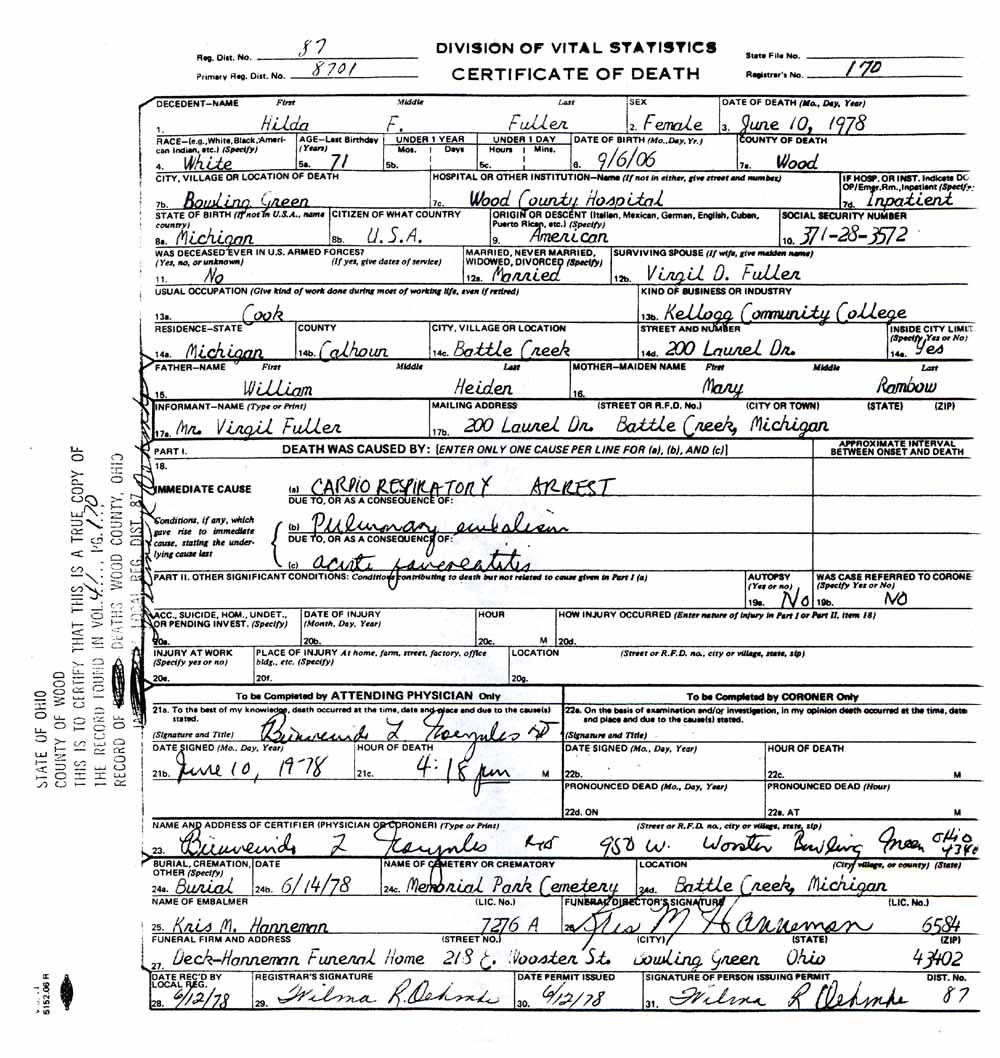 DIVISION OF VITAL STATISTICS
CERTIFICATE OF DEATH
Reg. Dist. No. 87
Primary Reg. Dist. No. 8701
State File No.
Registrar's No. 170
DECEDENT—NAME First Middle Last SEX DATE OF DEATH (Mo., Day, Year)
1. Hilda F. Fuller 2. Female 3. June 10, 1978
RACE—(e.g., White, Black, Ameri- AGE—Last Birthday UNDER 1 YEAR UNDER 1 DAY DATE OF BIRTH (Mo., Day, Yr.) COUNTY OF DEATH
can Indian, etc.) (Specify) (Years) Mos. Days Hours Mins.
4. White 5a. 71 5b. 5c. 6. 9/6/06 7a. Wood
CITY, VILLAGE OR LOCATION OF DEATH HOSPITAL OR OTHER INSTITUTION—Name (If not in either, give street and number) IF HOSP. OR INST. Indicate DO
OP/Emer. Rm., Inpatient (Specify)
7b. Bowling Green 7c. Wood County Hospital 7d. Inpatient
STATE OF BIRTH (If not in U.S.A., name CITIZEN OF WHAT COUNTRY ORIGIN OR DESCENT (Italian, Mexican, German, English, Cuban, SOCIAL SECURITY NUMBER
country) Puerto Rican, etc.) (Specify)
8a. Michigan 8b. U.S.A. 9. American 10. 371-28-3572
WAS DECEASED EVER IN U.S. ARMED FORCES? MARRIED, NEVER MARRIED, SURVIVING SPOUSE (If wife, give maiden name)
(Yes, no, or unknown) (If yes, give dates of service) WIDOWED, DIVORCED (Specify)
11. No 12a. Married 12b. Virgil D. Fuller
USUAL OCCUPATION (Give kind of work done during most of working life, even if retired) KIND OF BUSINESS OR INDUSTRY
13a. Cook 13b. Kellogg Community College
RESIDENCE—STATE COUNTY CITY, VILLAGE OR LOCATION STREET AND NUMBER INSIDE CITY LIMIT
(Specify Yes or No)
14a. Michigan 14b. Calhoun 14c. Battle Creek 14d. 200 Laurel Dr. 14e. Yes
FATHER—NAME First Middle Last MOTHER—MAIDEN NAME First Middle Last
15. William Heiden 16. Mary Rambow
INFORMANT—NAME (Type or Print) MAILING ADDRESS (STREET OR R.F.D. No.) (CITY OR TOWN) (STATE) (ZIP)
17a. Mr. Virgil Fuller 17b. 200 Laurel Dr. Battle Creek, Michigan
PART I. DEATH WAS CAUSED BY: [ENTER ONLY ONE CAUSE PER LINE FOR (a), (b), AND (c)] APPROXIMATE INTERVAL
BETWEEN ONSET AND DEATH
18.
IMMEDIATE CAUSE (a) CARDIO RESPIRATORY ARREST
DUE TO, OR AS A CONSEQUENCE OF:
Conditions, if any, which
gave rise to immediate
cause, stating the under-
lying cause last
(b) Pulmonary embolism
DUE TO, OR AS A CONSEQUENCE OF:
(c) acute pancreatitis
PART II. OTHER SIGNIFICANT CONDITIONS: Conditions contributing to death but not related to cause given in Part I (a) AUTOPSY WAS CASE REFERRED TO CORONE
(Yes or no) (Specify Yes or No)
19a. No 19b. NO
ACC., SUICIDE, HOM., UNDET., DATE OF INJURY HOUR HOW INJURY OCCURRED (Enter nature of injury in Part I or Part II, item 18)
OR PENDING INVEST. (Specify) (Month, Day, Year)
20a. 20b. 20c. M 20d.
INJURY AT WORK PLACE OF INJURY At home, farm, street, factory, office LOCATION (Street or R.F.D. no., city or village, state, zip)
(Specify yes or no) bldg., etc. (Specify)
20e. 20f. 20g.
To be Completed by ATTENDING PHYSICIAN Only
21a. To the best of my knowledge, death occurred at the time, date and place and due to the cause(s)
stated.
(Signature and Title) Bienvenido L.
DATE SIGNED (Mo., Day, Year) HOUR OF DEATH
21b. June 10, 1978 21c. 4:18 pm M
To be Completed by CORONER Only
22a. On the basis of examination and/or investigation, in my opinion death occurred at the time, date
and place and due to the cause(s) stated.
(Signature and Title)
DATE SIGNED (Mo., Day, Year) HOUR OF DEATH
22b. 22c. M
PRONOUNCED DEAD (Mo., Day, Year) PRONOUNCED DEAD (Hour)
22d. ON 22e. AT M
NAME AND ADDRESS OF CERTIFIER (PHYSICIAN OR CORONER) (Type or Print) (Street or R.F.D. no., city or village, state, zip)
23. Bienvenido L 950 W. Wooster Bowling Green Ohio
BURIAL, CREMATION, DATE NAME OF CEMETERY OR CREMATORY LOCATION (City, village, or county) (State)
OTHER (Specify)
24a. Burial 24b. 6/14/78 24c. Memorial Park Cemetery 24d. Battle Creek, Michigan
NAME OF EMBALMER (LIC. No.) FUNERAL DIRECTOR'S SIGNATURE (LIC. No.)
25. Kris M. Hanneman 7276 A 26. Kris M Hanneman 6584
FUNERAL FIRM AND ADDRESS (STREET NO.) (CITY) (STATE) (ZIP)
27. Deck-Hanneman Funeral Home 218 E. Wooster St. Bowling Green Ohio 43402
DATE REC'D BY REGISTRAR'S SIGNATURE DATE PERMIT ISSUED SIGNATURE OF PERSON ISSUING PERMIT DIST. No.
LOCAL REG.
28. 6/12/78 29. Wilma R. Oehmke 30. 6/12/78 31. Wilma R Oehmke 87
STATE OF OHIO
COUNTY OF WOOD
THIS IS TO CERTIFY THAT THIS IS A TRUE COPY OF
THE RECORD FOUND IN VOL. 41, PG. 170
RECORD OF DEATHS WOOD COUNTY, OHIO
LOCAL REG DIST 87
5152.06 R